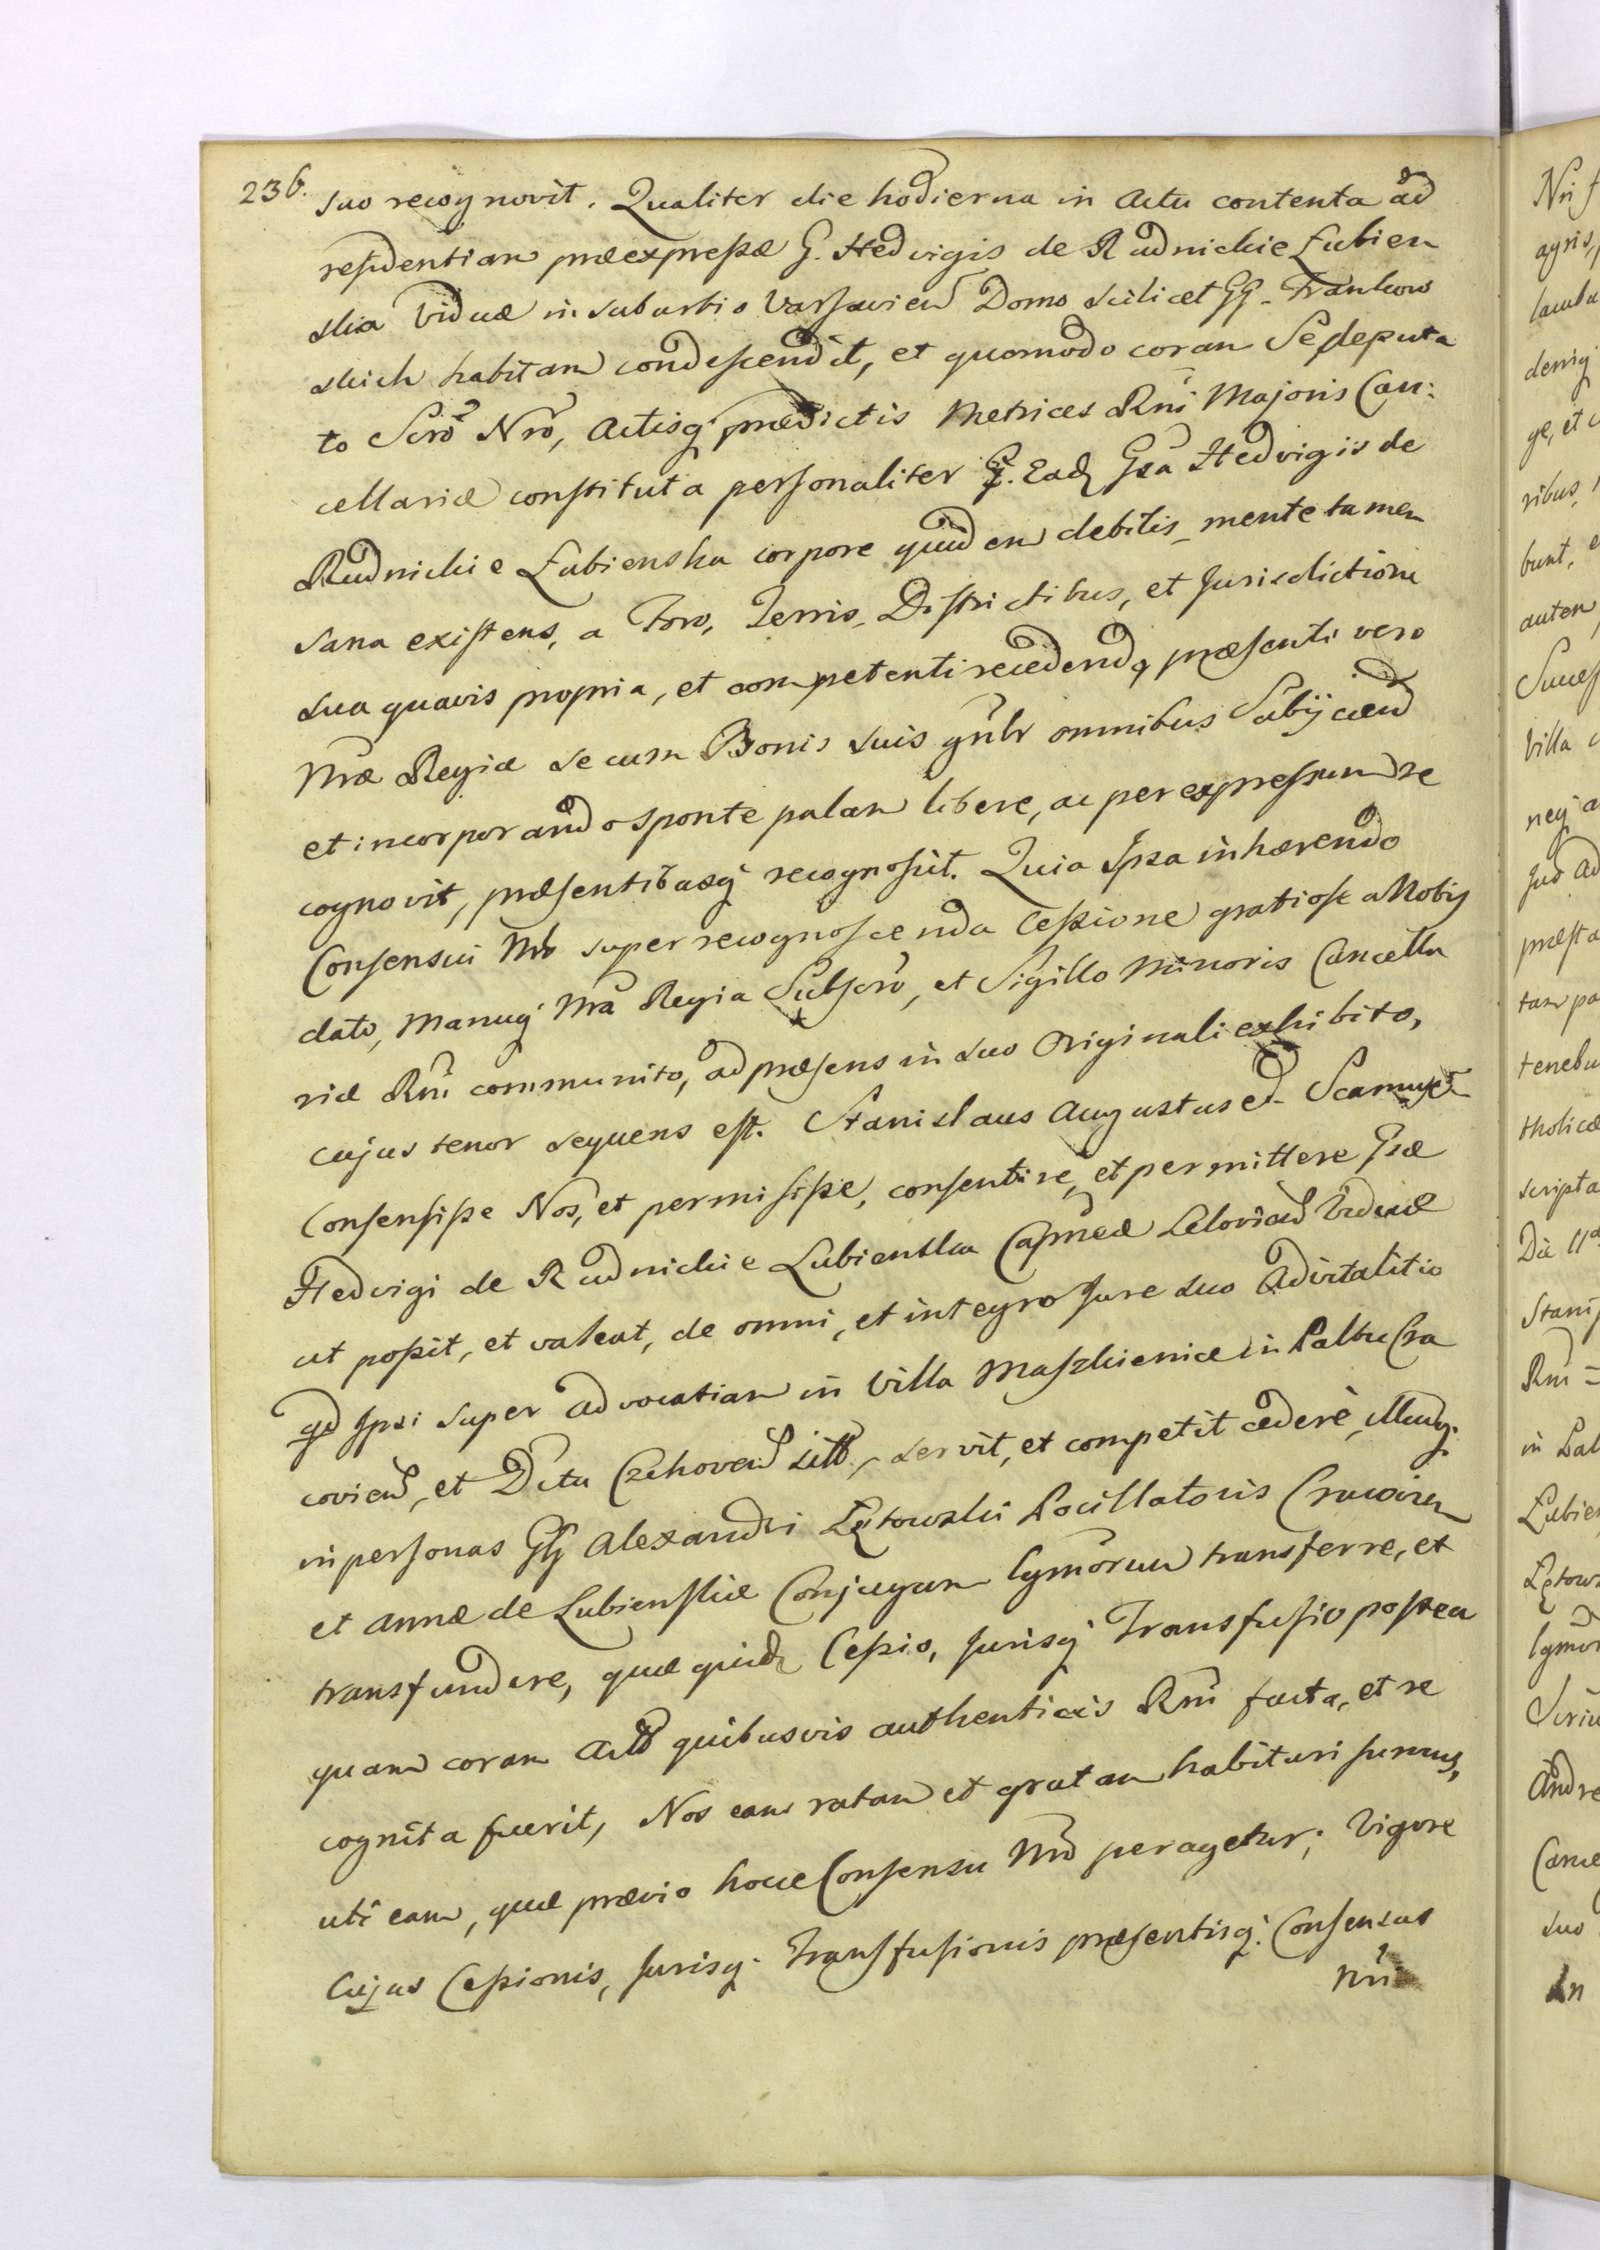 236.
suo recognovit. Qualiter die hodierna in Actu contenta ad
residentiam præexpressæ G. Hedvigis de Rudnickie Łubien
ska Viduæ in suburbio Varsavien Domo scilicet GG. Frankows
skich habitam condescendit, et quomodo coram Se deputa
to Scrō Nrō, Actisq prædictis Metrices Rni Majoris Can:
cellariæ constituta personaliter G. Ead Gsa Hedvigis de
Rudnickie Łubienska corpore quidem debilis, mente tamen
sana existens, a Foro, Terris, Districtibus, et Jurisdictione
sua quavis propria, et competenti recedendo, præsenti vero
Nræ Regiæ se cum Bonis suis gnlr omnibus Subijciend
et incorporando sponte palam libere, ac per expressum re
cognovit, præsentibusq recognoscit. Quia Ipsa inhærendo
Consensui Nrō super recognoscenda Cessione gratiose a Nobis
dato, Manuq Nra Regia Subscrō, et Sigillo Minoris Cancella
riæ Rni communito, ad præsens in suo Originali exhibito,
cujus tenor sequens est. Stanislaus Augustus etc
Consensisse Nos, et permisisse, consentire, et permittere Gsæ
Hedvigi de Rudnickie Lubienska Capneæ Leloviend Viduæ
ut possit, et valeat, de omni, et integro Jure suo Advitalitio
qd Ipsi super Advocatiam in Villa Maszkienice in Palttu Cra
covien, et Dctu Czchovien sitt, servit, et competit cedere, Illudq.
in personas GG Alexandri Łętowski Pocillatoris Cracovien
et Annæ de Lubienskie Conjugum lgmorum transferre, et
transfundere, quæ quid Cessio, Jurisq Transfusio postea
quam coram Actis quibusvis authenticis Rni facta, et re
cognita fuerit, Nos eam ratam et gratam habituri sumus,
uti eam, quæ prævio hocce Consensu Nrō peragetur; Vigore
Cujus Cessionis, Jurisq. Transfusionis præsentisq. Consensus
Nri